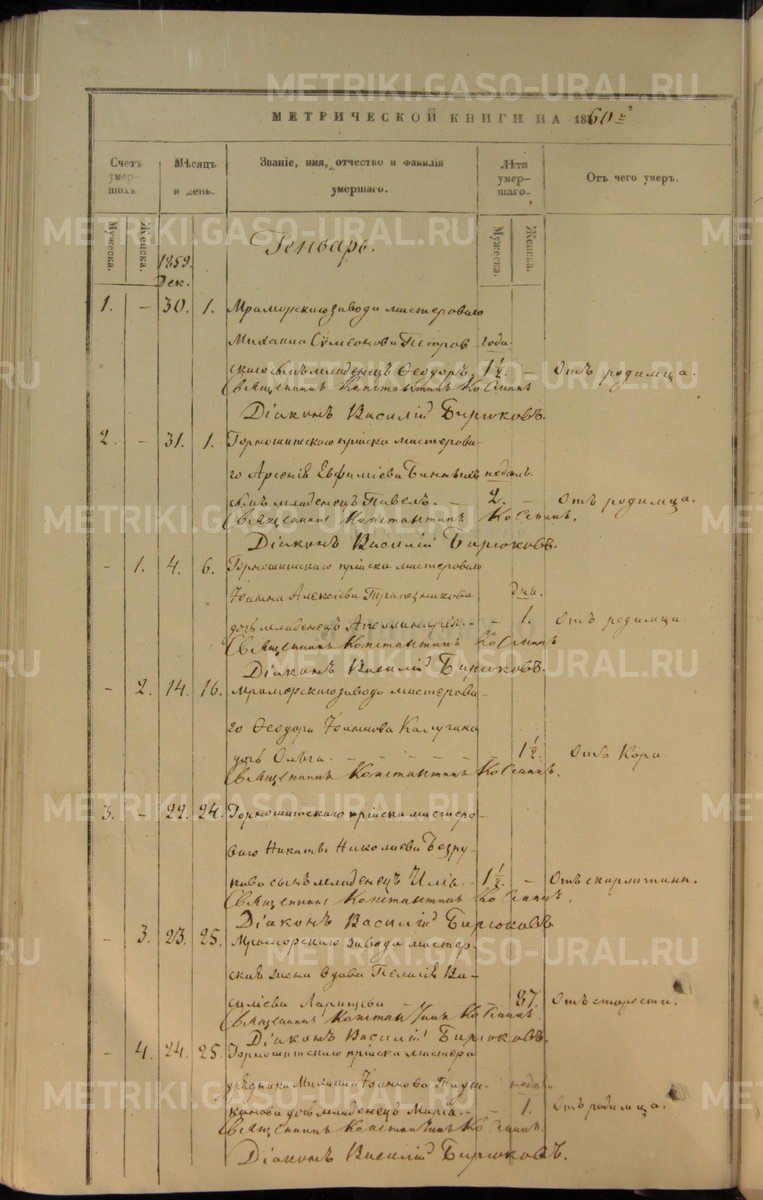 МЕТРИЧЕСКОЙ КНИГИ НА 1860 й
Счетъ умершихъ.
Мѣсяцъ и день.
Званіе, имя, отчество и фамилія умершаго.
Лѣта умершаго.
Отъ чего умеръ.
Мужеска.
Женска.
Мужеска.
Женска.
1859.
Дек.
Генварь.
1. – 30. 1. Мраморскаго завода мастероваго
Михаила Сумеонова Петров- года.
скаго сынъ младенецъ Ѳеодоръ. 1½. – Отъ родимца.
Священникъ Константинъ
Діаконъ Василій Бирюковъ.
2. – 31. 1. Горношитскаго пріиска мастерова-
го Арсенія Евфиміева недѣль.
сынъ младенецъ Павелъ. – 2. – Отъ родимца.
Священникъ Константинъ
Діаконъ Василій Бирюковъ.
– 1. 4. 6. Горношитскаго пріиска мастероваго
Іоанна Алексіева Трапезникова Дня.
дочь младенецъ Апеллинарія. – – 1. Отъ родимца.
Священникъ Константинъ
Діаконъ Василій Бирюковъ.
– 2. 14. 16. Мраморскаго завода мастерова-
го Ѳеодора Іоаннова Калугина
дочь Ольга. – – – – 1½. Отъ Кори
Священникъ Константинъ
3. – 22. 24. Горношитскаго пріиска мастеро-
ваго Никиты Николаева Безру-
кова сынъ младенецъ Илія. – 1½. – Отъ скарлатины.
Священникъ Константинъ
Діаконъ Василій Бирюковъ
– 3. 23. 25. Мраморскаго завода мастер-
ская жена вдова Пелагія Ва-
силіева – – 87. Отъ старости.
Священникъ Константинъ
Діаконъ Василій Бирюковъ.
– 4. 24. 25. Горношитскаго пріиска мастера
урядника Михаила Іоаннова недѣл.
дочь младенецъ Марія. – – 1. Отъ родимца.
Священникъ Константинъ
Діаконъ Василій Бирюковъ.
METRIKI.GASO-URAL.RU